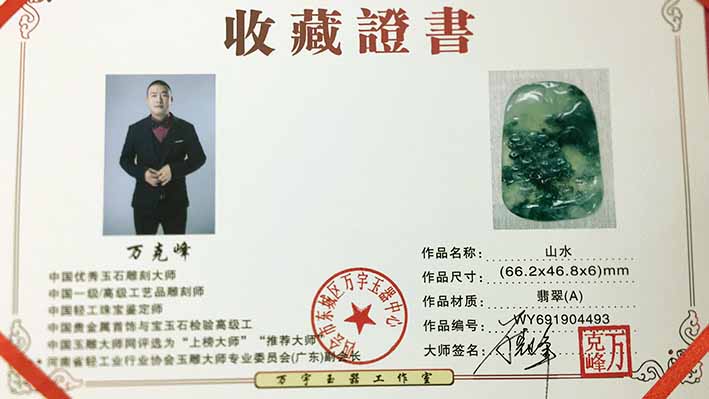 收藏證書
万克峰
中国优秀玉石雕刻大师
中国一级/高级工艺品雕刻师
中国轻工珠宝鉴定师
中国贵金属首饰与宝玉石检验高级工
中国玉雕大师网评选为“上榜大师”“推荐大师”
河南省轻工业行业协会玉雕大师专业委员会(广东)副会长
四会市东城区万宇玉器中心
作品名称: 山水
作品尺寸: (66.2x46.8x6)mm
作品材质: 翡翠(A)
作品编号: WY691904493
大师签名:
万克峰
万宇玉器工作室